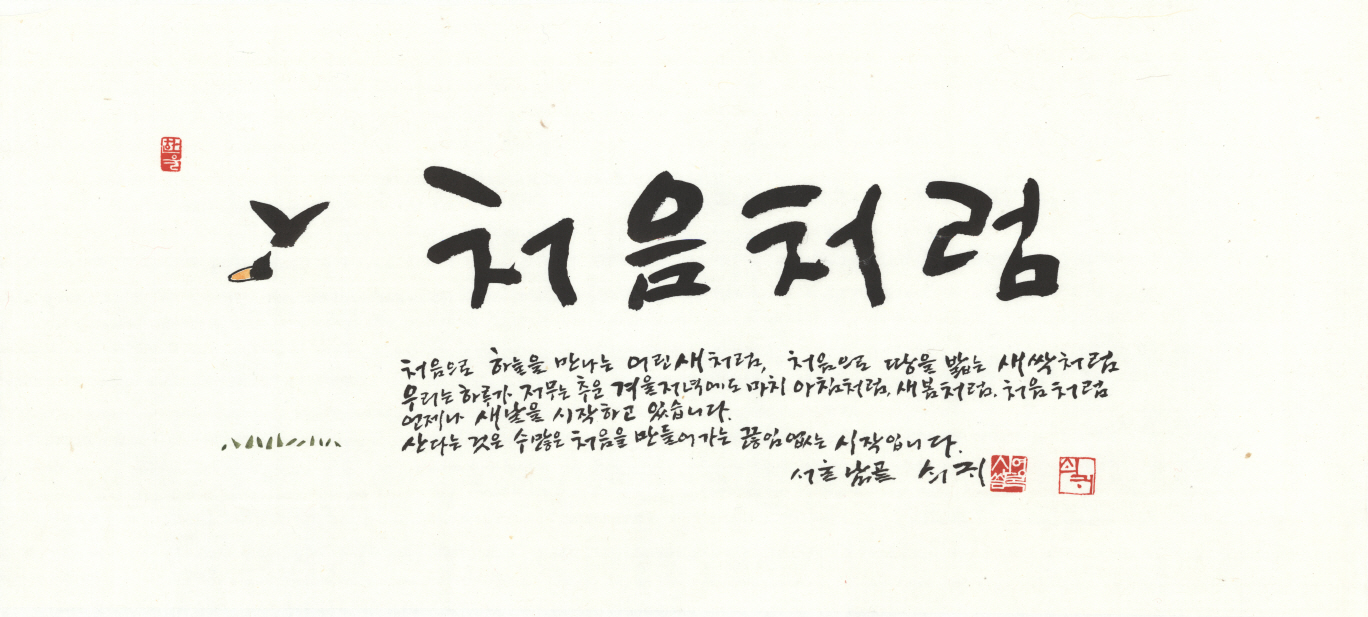 처음처럼
처음으로 하늘을 만나는 어린새처럼, 처음으로 땅을 밟는 새싹처럼
우리는 하루가 저무는 추운 겨울저녁에도 마치 아침처럼, 새봄처럼, 처음처럼
언제나 새날을 시작하고 있습니다.
산다는 것은 수많은 처음을 만들어가는 끊임없는 시작입니다.
서초